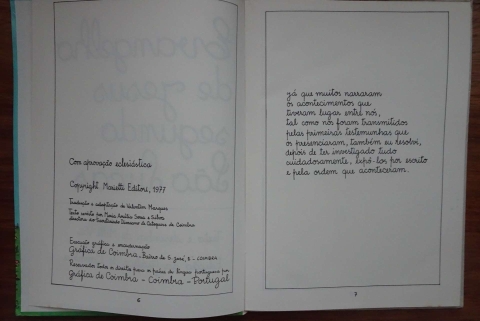 Com aprovação eclesiástica
Copyright Marietti Editori, 1977
Tradução e adaptação de Valentim Marques
Texto escrito por Maria Amélia
do Secretariado Diocesano de Catequese de Coimbra
Execução gráfica e encadernação
Gráfica de Coimbra - Bairro de S. José, 2 - COIMBRA
Reservados todos os direitos para os países de língua portuguesa por
Gráfica de Coimbra - Coimbra - Portugal
6
já que muitos narraram
os acontecimentos que
tiveram lugar entre nós,
tal como nos foram transmitidos
pelas primeiras testemunhas que
os presenciaram, também eu resolvi,
depois de ter investigado tudo
cuidadosamente, expô-los por escrito
e pela ordem que aconteceram.
7